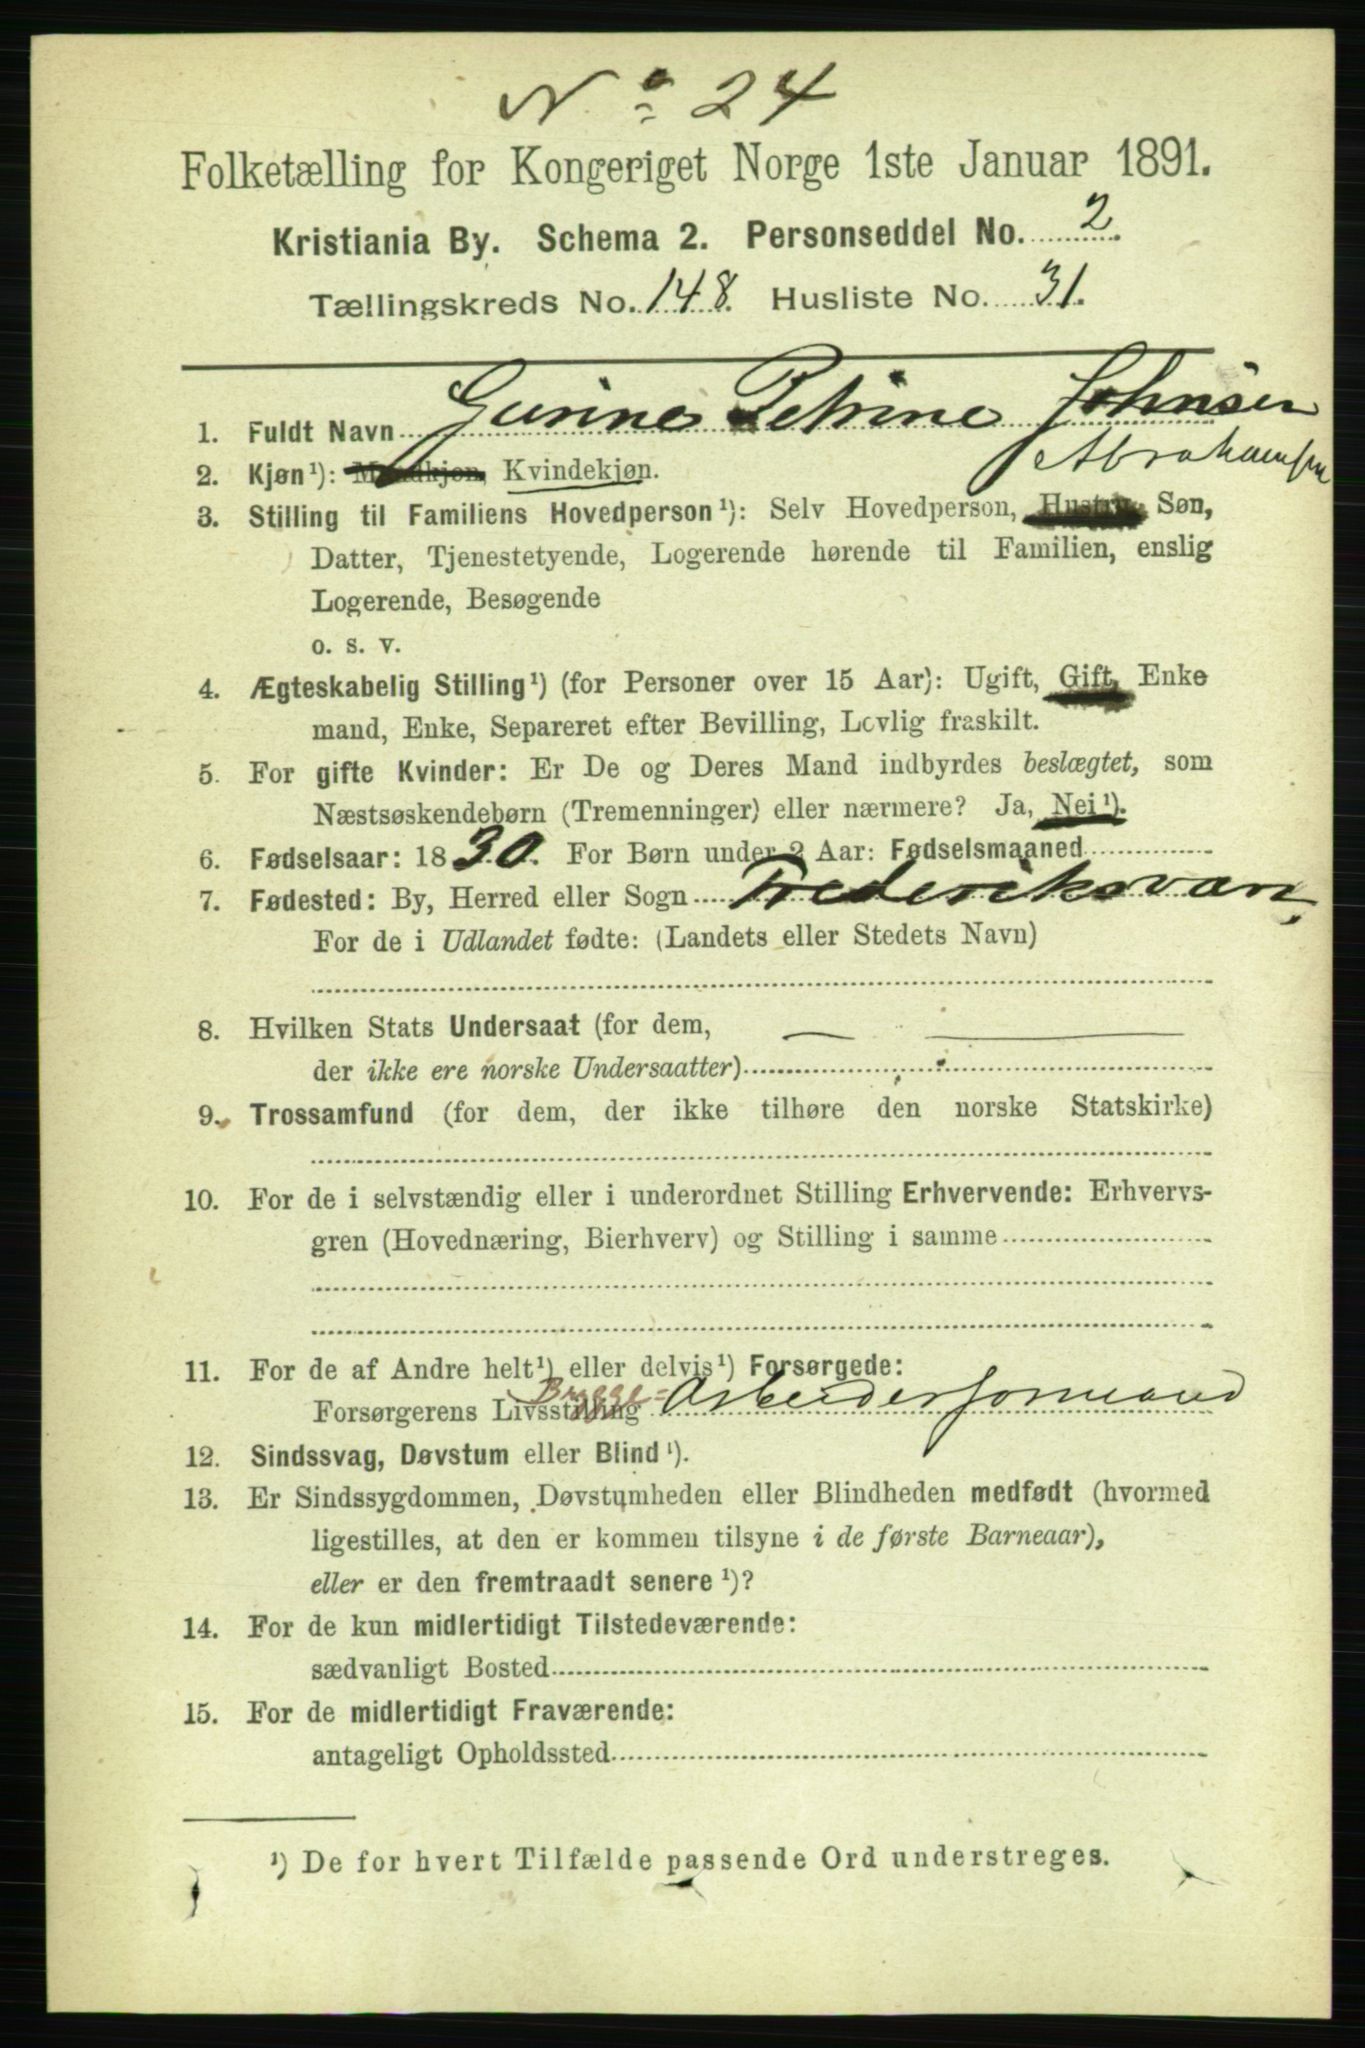 No 24
Folketælling for Kongeriget Norge 1ste Januar 1891.
Kristiania By. Schema 2. Personseddel No. 2.
Tællingskreds No. 148. Husliste No. 31.
1. Fuldt Navn Gurine Petrine Johnsen
Abrahamsen
2. Kjøn¹): Mandkjøn, Kvindekjøn.
3. Stilling til Familiens Hovedperson¹): Selv Hovedperson, Hustru, Søn,
Datter, Tjenestetyende, Logerende hørende til Familien, enslig
Logerende, Besøgende
o. s. v.
4. Ægteskabelig Stilling¹) (for Personer over 15 Aar): Ugift, Gift, Enke
mand, Enke, Separeret efter Bevilling, Lovlig fraskilt.
5. For gifte Kvinder: Er De og Deres Mand indbyrdes beslægtet, som
Næstsøskendebørn (Tremenninger) eller nærmere? Ja, Nei¹).
6. Fødselsaar: 1830. For Børn under 2 Aar: Fødselsmaaned
7. Fødested: By, Herred eller Sogn Frederiksværn,
For de i Udlandet fødte: (Landets eller Stedets Navn)
8. Hvilken Stats Undersaat (for dem,
der ikke ere norske Undersaatter)
9. Trossamfund (for dem, der ikke tilhøre den norske Statskirke)
10. For de i selvstændig eller i underordnet Stilling Erhvervende: Erhvervs-
gren (Hovednæring, Bierhverv) og Stilling i samme
11. For de af Andre helt¹) eller delvis¹) Forsørgede:
Forsørgerens Livsstilling Brygge= Arbeidersformand
12. Sindssvag, Døvstum eller Blind¹).
13. Er Sindssygdommen, Døvstumheden eller Blindheden medfødt (hvormed
ligestilles, at den er kommen tilsyne i de første Barneaar),
eller er den fremtraadt senere¹)?
14. For de kun midlertidigt Tilstedeværende:
sædvanligt Bosted
15. For de midlertidigt Fraværende:
antageligt Opholdssted
¹) De for hvert Tilfælde passende Ord understreges.